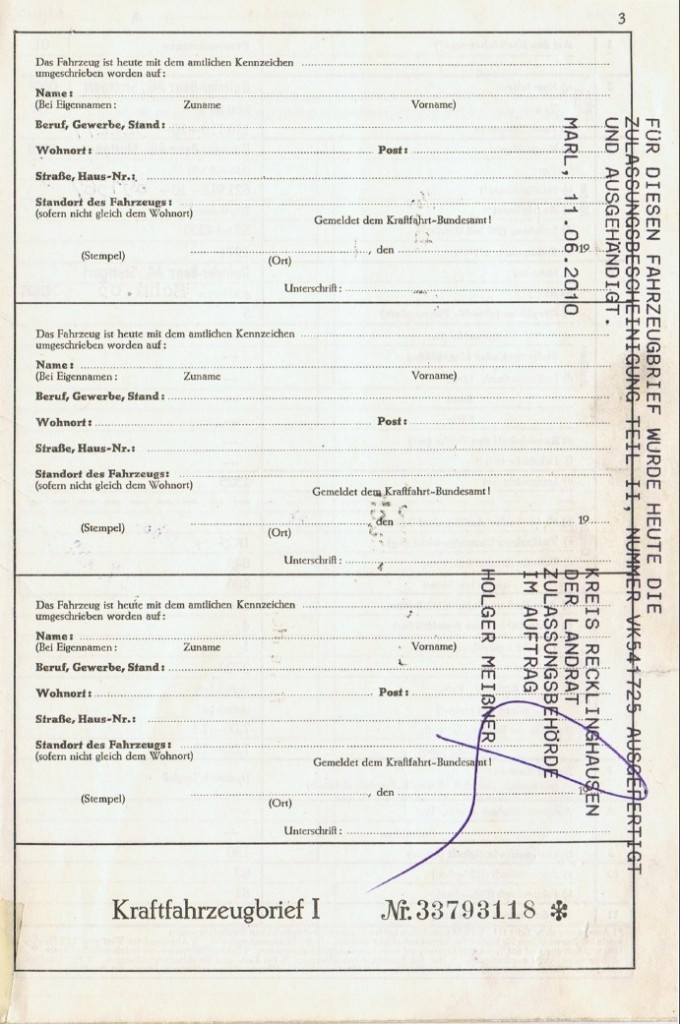 3
Das Fahrzeug ist heute mit dem amtlichen Kennzeichen
umgeschrieben worden auf:
Name:
(Bei Eigennamen: Zuname Vorname)
Beruf, Gewerbe, Stand:
Wohnort: Post:
Straße, Haus-Nr.:
Standort des Fahrzeugs:
(sofern nicht gleich dem Wohnort)
Gemeldet dem Kraftfahrt-Bundesamt!
(Stempel) , den 19
(Ort)
Unterschrift:
Das Fahrzeug ist heute mit dem amtlichen Kennzeichen
umgeschrieben worden auf:
Name:
(Bei Eigennamen: Zuname Vorname)
Beruf, Gewerbe, Stand:
Wohnort: Post:
Straße, Haus-Nr.:
Standort des Fahrzeugs:
(sofern nicht gleich dem Wohnort)
Gemeldet dem Kraftfahrt-Bundesamt!
(Stempel) den 19
(Ort)
Unterschrift:
Das Fahrzeug ist heute mit dem amtlichen Kennzeichen
umgeschrieben worden auf:
Name:
(Bei Eigennamen: Zuname Vorname)
Beruf, Gewerbe, Stand:
Wohnort: Post:
Straße, Haus-Nr.:
Standort des Fahrzeugs:
(sofern nicht gleich dem Wohnort)
Gemeldet dem Kraftfahrt-Bundesamt!
(Stempel) , den 19
(Ort)
Unterschrift:
Kraftfahrzeugbrief I Nr. 33793118 *
FÜR DIESEN FAHRZEUGBRIEF WURDE HEUTE DIE
ZULASSUNGSBESCHEINIGUNG TEIL II, NUMMER VK541725 AUSGEFERTIGT
UND AUSGEHÄNDIGT.
MARL, 11.06.2010
KREIS RECKLINGHAUSEN
DER LANDRAT
ZULASSUNGSBEHÖRDE
IM AUFTRAG
HOLGER MEIßNER